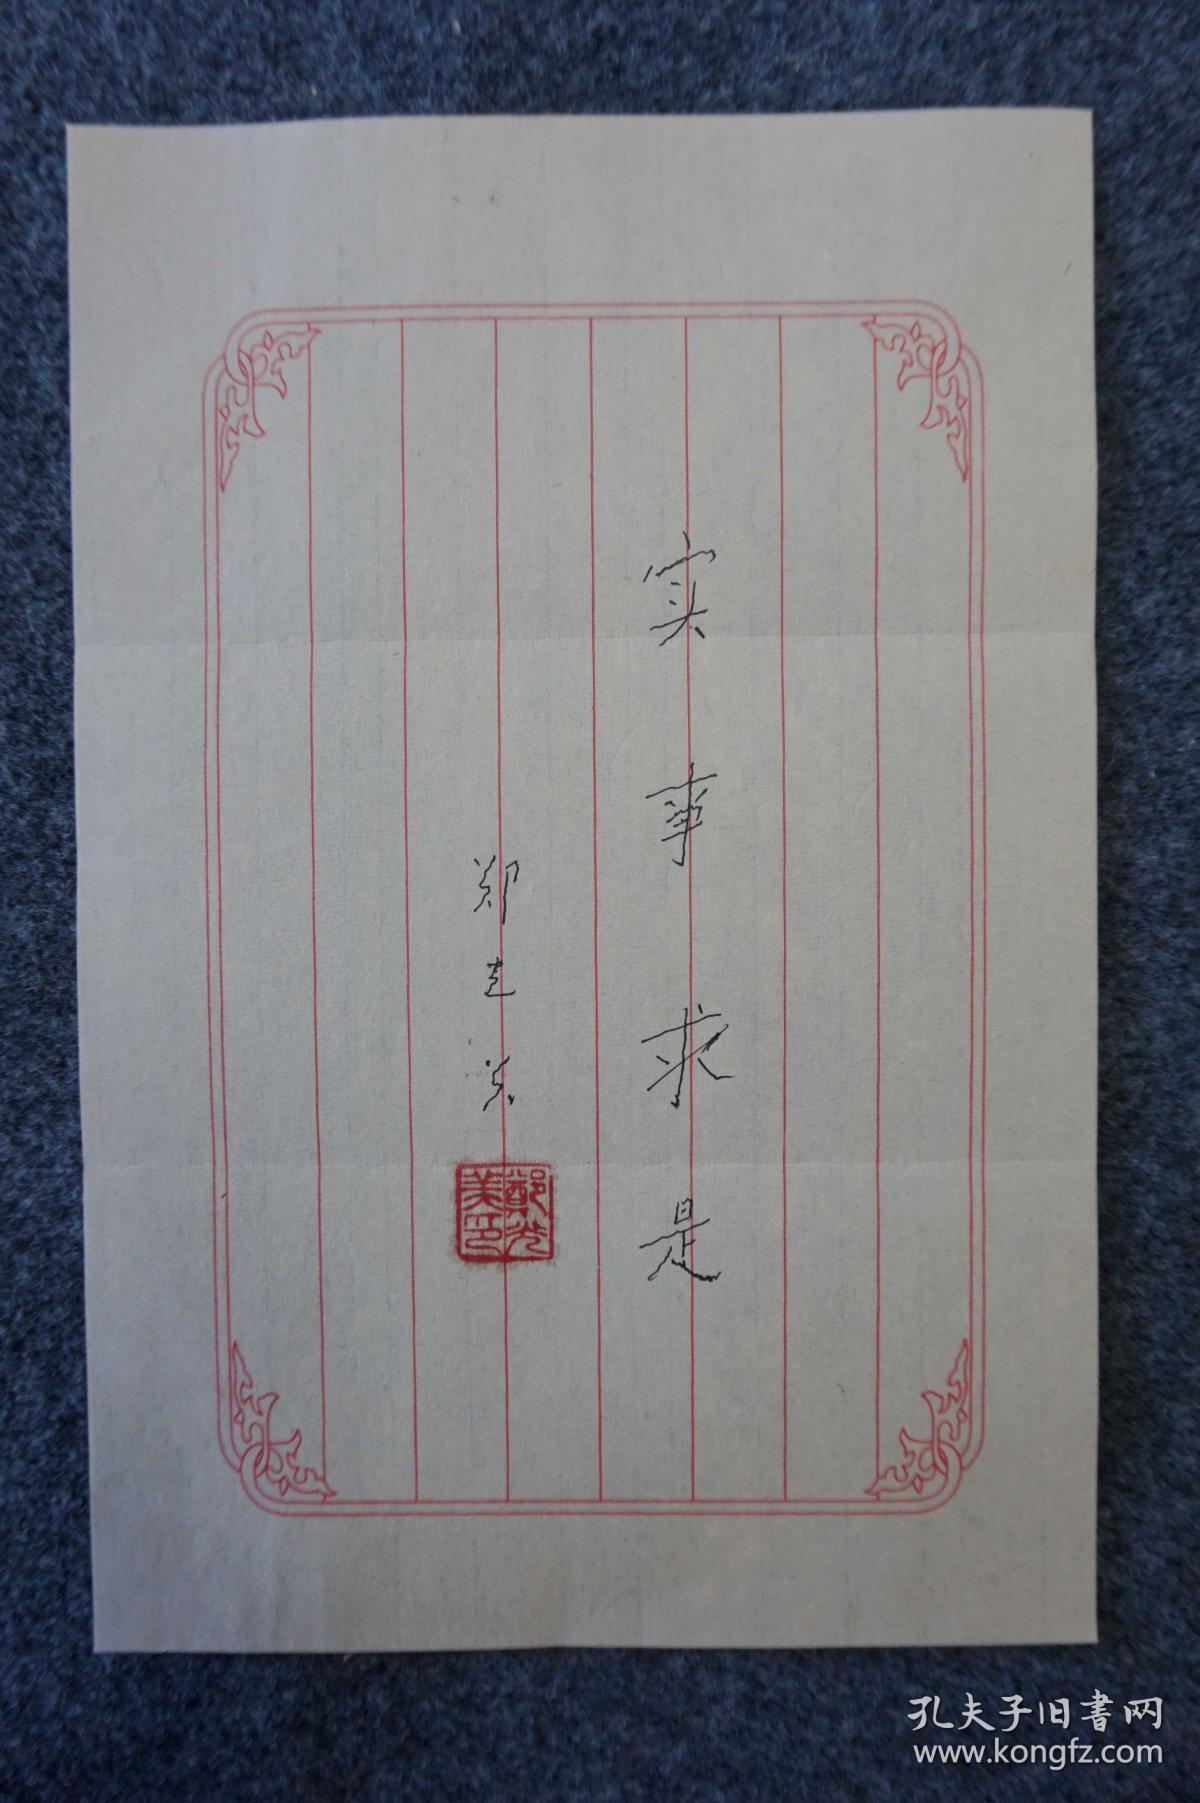 实事求是
郑光美
鄭光美印
孔夫子旧書网
www.kongfz.com